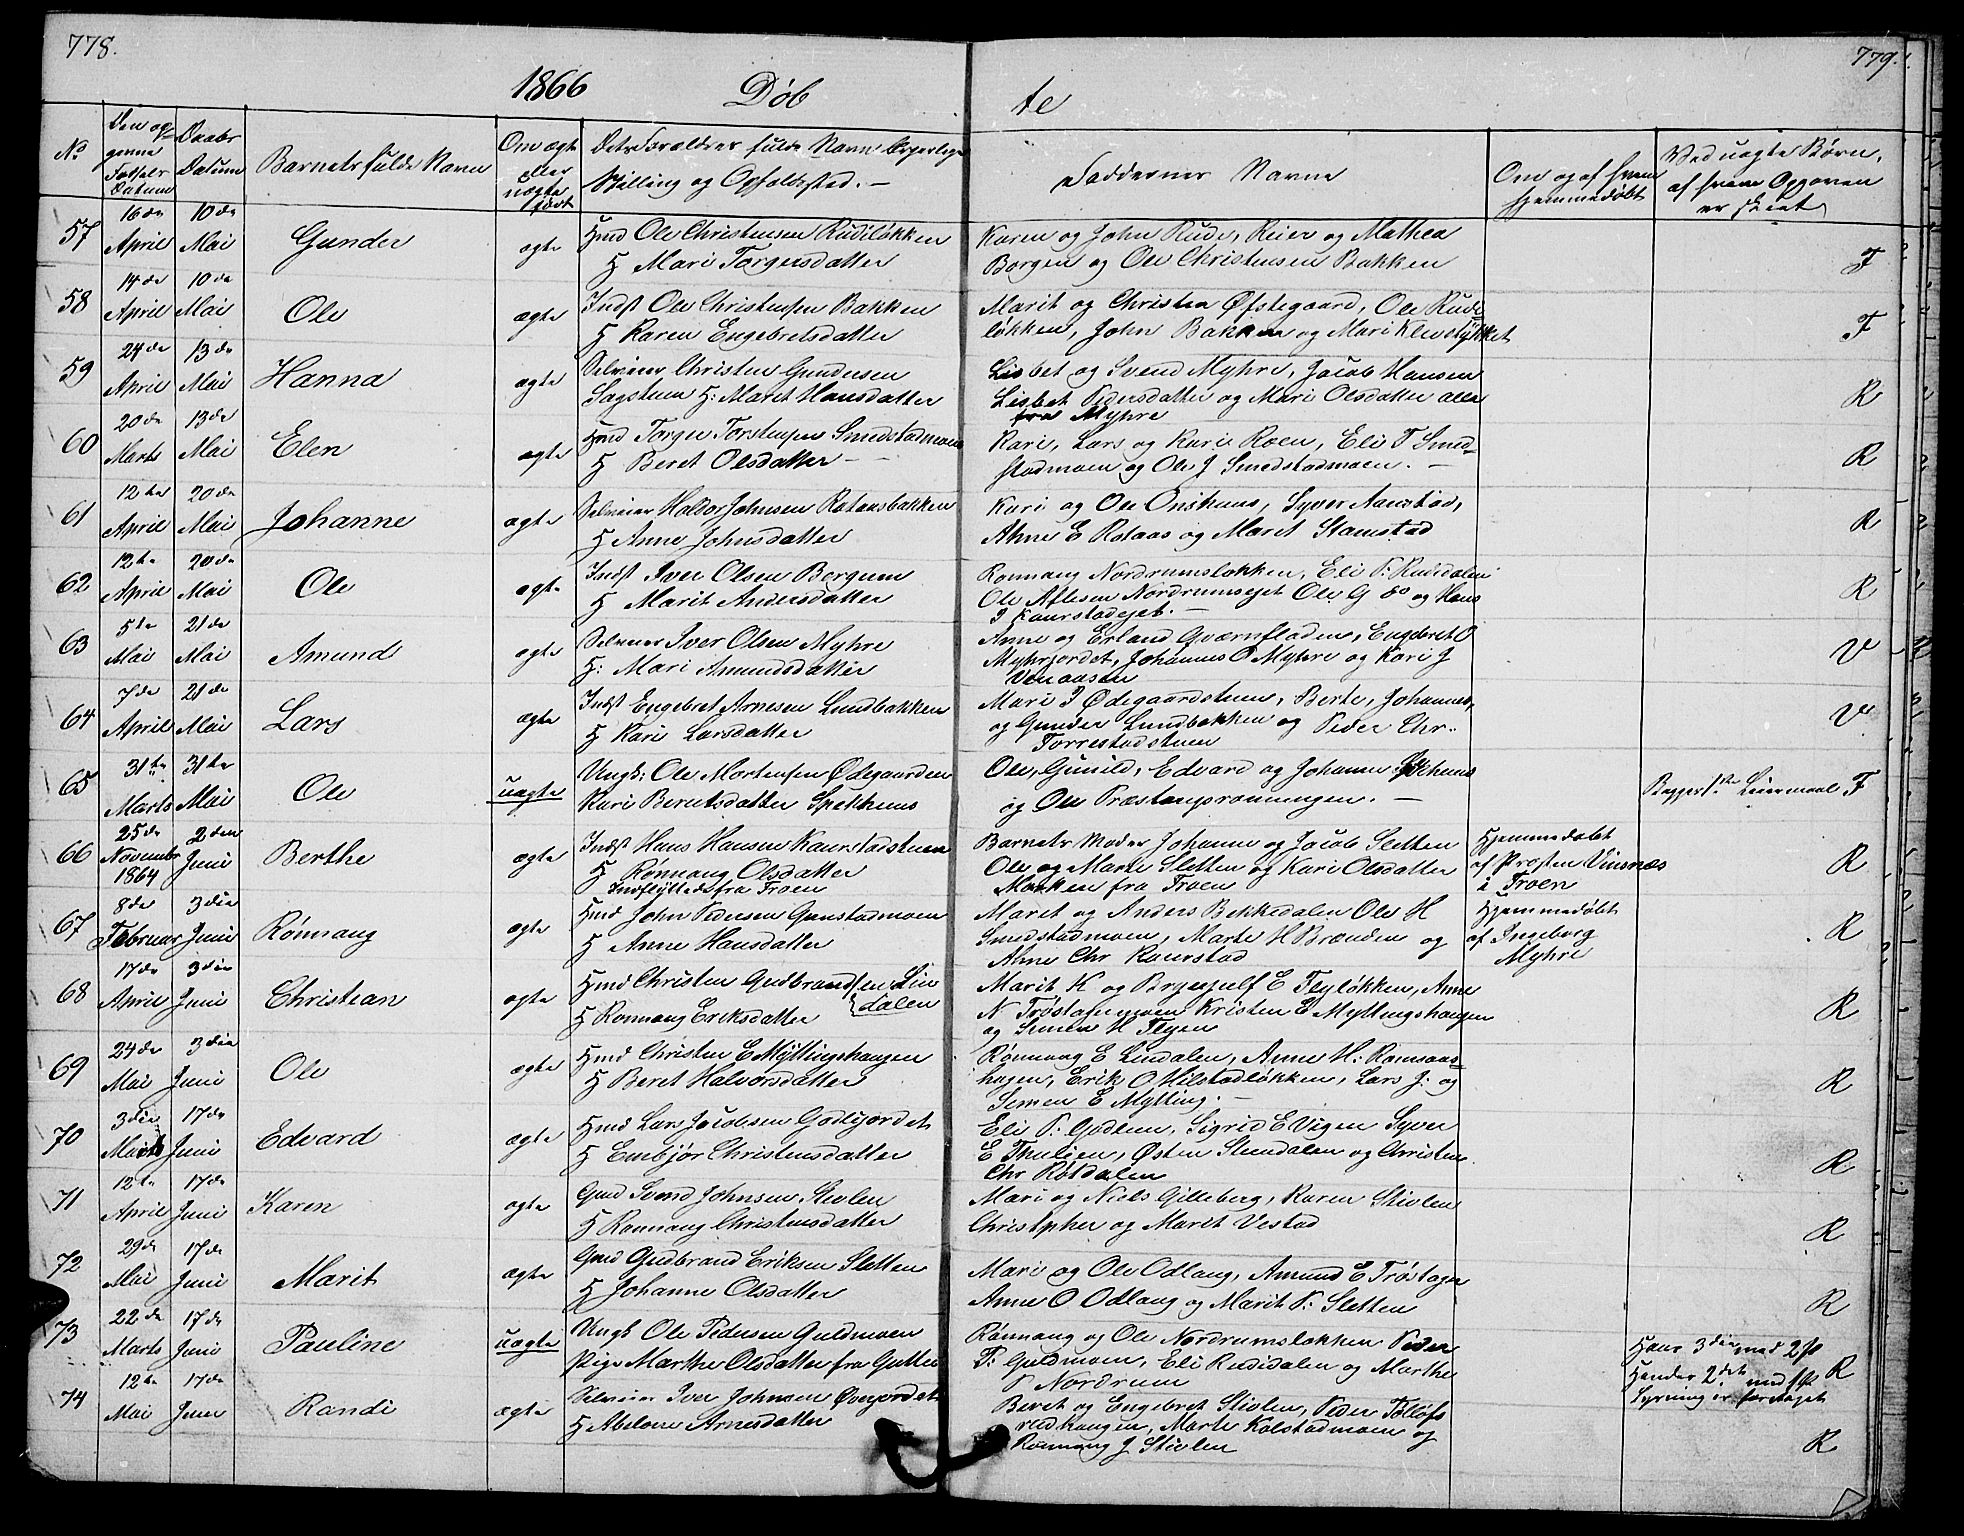 778.
779.
1866 Døb
te
No
Den op-
givne
Fødsels
Datum
Daabs
Datum
Barnets fulde Navn
Om ægte
eller
uægte
født
Dets Forældres fulde Navn Borgerlige
Stilling og Opholdssted. —
Faddernes Navne
Om og af hvem
hjemmedøbt
Ved uægte Børn,
af hvem Opgaven
er skeet
57
16de April
10de Mai
Gunder
ægte
Hmd Ole Christensen Rudiløkken
H Mari Torgersdatter
Karen og John Rude, Reier og Mathea
Borgen og Ole Christensen Bakken
F
58
14de April
10de Mai
Ole
ægte
Indst Ole Christensen Bakken
H Karen Engebretsdatter
Marit og Christen Øfstegaard, Ole Rudi
løkken, John Bakken og Mari Klevstykket
F
59
24de April
13de Mai
Hanna
ægte
Selveier Christen Gundersen
Sagstuen H: Marit Hansdatter
Lisbet og Svend Myhre, Jacob Hansen
Lisbet Pedersdatter og Mari Olsdatter alle
fra Myhre
R
60
20de Marts
13de Mai
Elen
ægte
Hmd Torger Torstensen Smedstadmoen
H Beret Olsdatter —
Kari, Lars og Kari Roen, Eli T Smed-
stadmoen og Ole J Smedstadmoen. —
R
61
12te April
20de Mai
Johanne
ægte
Selveier Halvor Johnsen Rotaasbakken
H Anne Johnsdatter
Kari og Ole Onshuus, Syver Aanstad,
Anne E Rotaas og Marit Stamstad
R
62
12te April
20de Mai
Ole
ægte
Indst Iver Olsen Borgum
H Marit Andersdatter
Rønnaug Nordrumsløkken, Eli P: Rudidalen
Ole Aftesen Nordrumsejet Ole G do og Hans
J Kaurstadejet. —
R
63
5te Mai
21de Mai
Amund
ægte
Selveier Iver Olsen Myhre
H: Mari Amundsdatter
Anne og Erland Qværnfladen, Engebret O
Myhrjordet, Johannes O Myhre og Kari J
V
64
7de April
21de Mai
Lars
ægte
Indst Engebret Arnesen Lundbakken
H Kari Larsdatter
Mari J Ødegaardstuen, Berte, Johannes,
og Gunder Lundbakken og Peder Chr.
Torrestadstuen
V
65
31te Marts
31te Mai
Ole
uægte
Ungk: Ole Mortensen Ødegaarden
Kari Berntsdatter Spekhuus
Ole, Gunild, Edvard og Johanne
og Ole Præstengsrønningen. —
Begges 1ste Leiermaal F
66
25de Novembr 1864
2den Juni
Berthe
ægte
Indst Hans Hansen Kaurstadstuen
H Rønnaug Olsdatter
Indflyttede fra Froen
Barnets Moder Johanne og Jacob Sletten
Ole og Marte Sletten og Kari Olsdatter
Morken fra Froen
Hjemmedøbt
af Præsten Vinsnes
i Froen
R
67
8de Februar
3die Juni
Rønnaug
ægte
Hmd John Pedersen Gunstadmoen
H Anne Hansdatter
Marit og Anders Bekkedalen Ole H
Smedstadmoen, Marte H Brænden og
Anne Chr Kaurstad
Hjemmedøbt
af Ingeborg
Myhre
R
68
17de April
3die Juni
Christian
ægte
Hmd Christen Gudbrandsen Lin
dalen
H Rønnaug Eriksdatter
Marit K og Brynjulf E Flyløkken, Anne
N Trøstagermoen Kristen E Myttingshaugen
og Simen H Flyen
R
69
24de Mai
3die Juni
Ole
ægte
Hmd Christen E Myttingshaugen
H Beret Halvorsdatter
Rønnaug E Lindalen, Anne H: Ramsaas-
hagen, Erik O Hilstadløkken, Lars J: og
Simen E Mytting. —
R
70
3die Marts
17de Juni
Edvard
ægte
Hmd Lars Jacobsen Godlijordet
H Embjør Christensdatter
Eli P: Godlien, Sigrid E Vigen Syver
E Thulien, Østen Stendalen og Christen
Chr Røtdalen
R
71
12te April
17de Juni
Karen
ægte
Gmd Svend Johnsen Stivlen
H Rønnaug Christensdatter
Mari og Niels Gilleberg, Karen Stivlen
Christopher og Marit Vestad
R
72
29de Mai
17de Juni
Marit
ægte
Gmd Gudbrand Eriksen Sletten
H Johanne Olsdatter
Mari og Ole Odlaug, Amund E Trøstager
Anne O Odlaug og Marit P: Sletten
R
73
22de Marts
17de Juni
Pauline
uægte
Ungk Ole Pedersen Guldmoen
Pige Marthe Olsdatter fra Gutte
Rønnaug og Ole Nordrumsløkken Peder
P: Guldmoen, Eli Rudidalen og Marthe
P Nordrum
Hans 3die med 2 fr
Hendes 2det med 1 fr
Lysning er foretaget
R
74
12te Mai
17de Juni
Randi
ægte
Selveier Iver Johnsen Øverjordet
H Abelone Arnesdatter
Beret og Engebret Stivlen, Peder Tollofs
rudhaugen, Marte Kolstadmoen og
Rønnaug J Stivlen
R